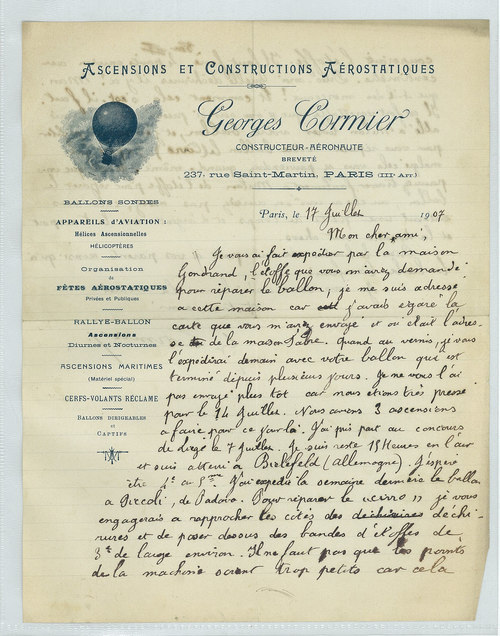 Ascensions et Constructions Aérostatiques
Georges Cormier
CONSTRUCTEUR-AÉRONAUTE
BREVETÉ
237, rue Saint-Martin, PARIS (IIIe Arrt)
BALLONS SONDES
APPAREILS D'AVIATION :
Hélices Ascensionnelles
HÉLICOPTÈRES
Organisation
de
FÊTES AÉROSTATIQUES
Privées et Publiques
RALLYE-BALLON
Ascensions
Diurnes et Nocturnes
ASCENSIONS MARITIMES
(Matériel spécial)
CERFS-VOLANTS RÉCLAME
BALLONS DIRIGEABLES
ET
CAPTIFS
Paris, le 17 Juillet 1907
Mon cher ami,
Je vous ai fait expédier par la maison
Gondrand, l'étoffe que vous m'avez demandé
pour réparer le ballon, je me suis adressé
a cette maison car j'avais egaré la
carte que vous m'avez envoyé et où était l'adres-
se de la maison Fabre. Quand au vernis, je vous
l'expédirai demain avec votre ballon qui est
terminé depuis plusieurs jours. Je ne vous l'ai
pas envoyé plus tot car nous etions très pressé
par le 14 Juillet. Nous avons 3 ascensions
a faire par ce jour là. J'ai pris part au concours
de Liège le 7 Juillet. Je suis resté 15 Heures en l'air
et suis atterri a Bielefeld (Allemagne). J'espère
être 4e ou 5me. J'ai expedié la semaine dernière le ballon
a Piccoli, de Padova. Pour réparer le "cirro" je vous
engagerais a rapprocher les cotés des déchi-
rures et de poser dessus des bandes d'étoffes de
de large environ. Il ne faut pas que les points
de la machine soient trop petits car cela